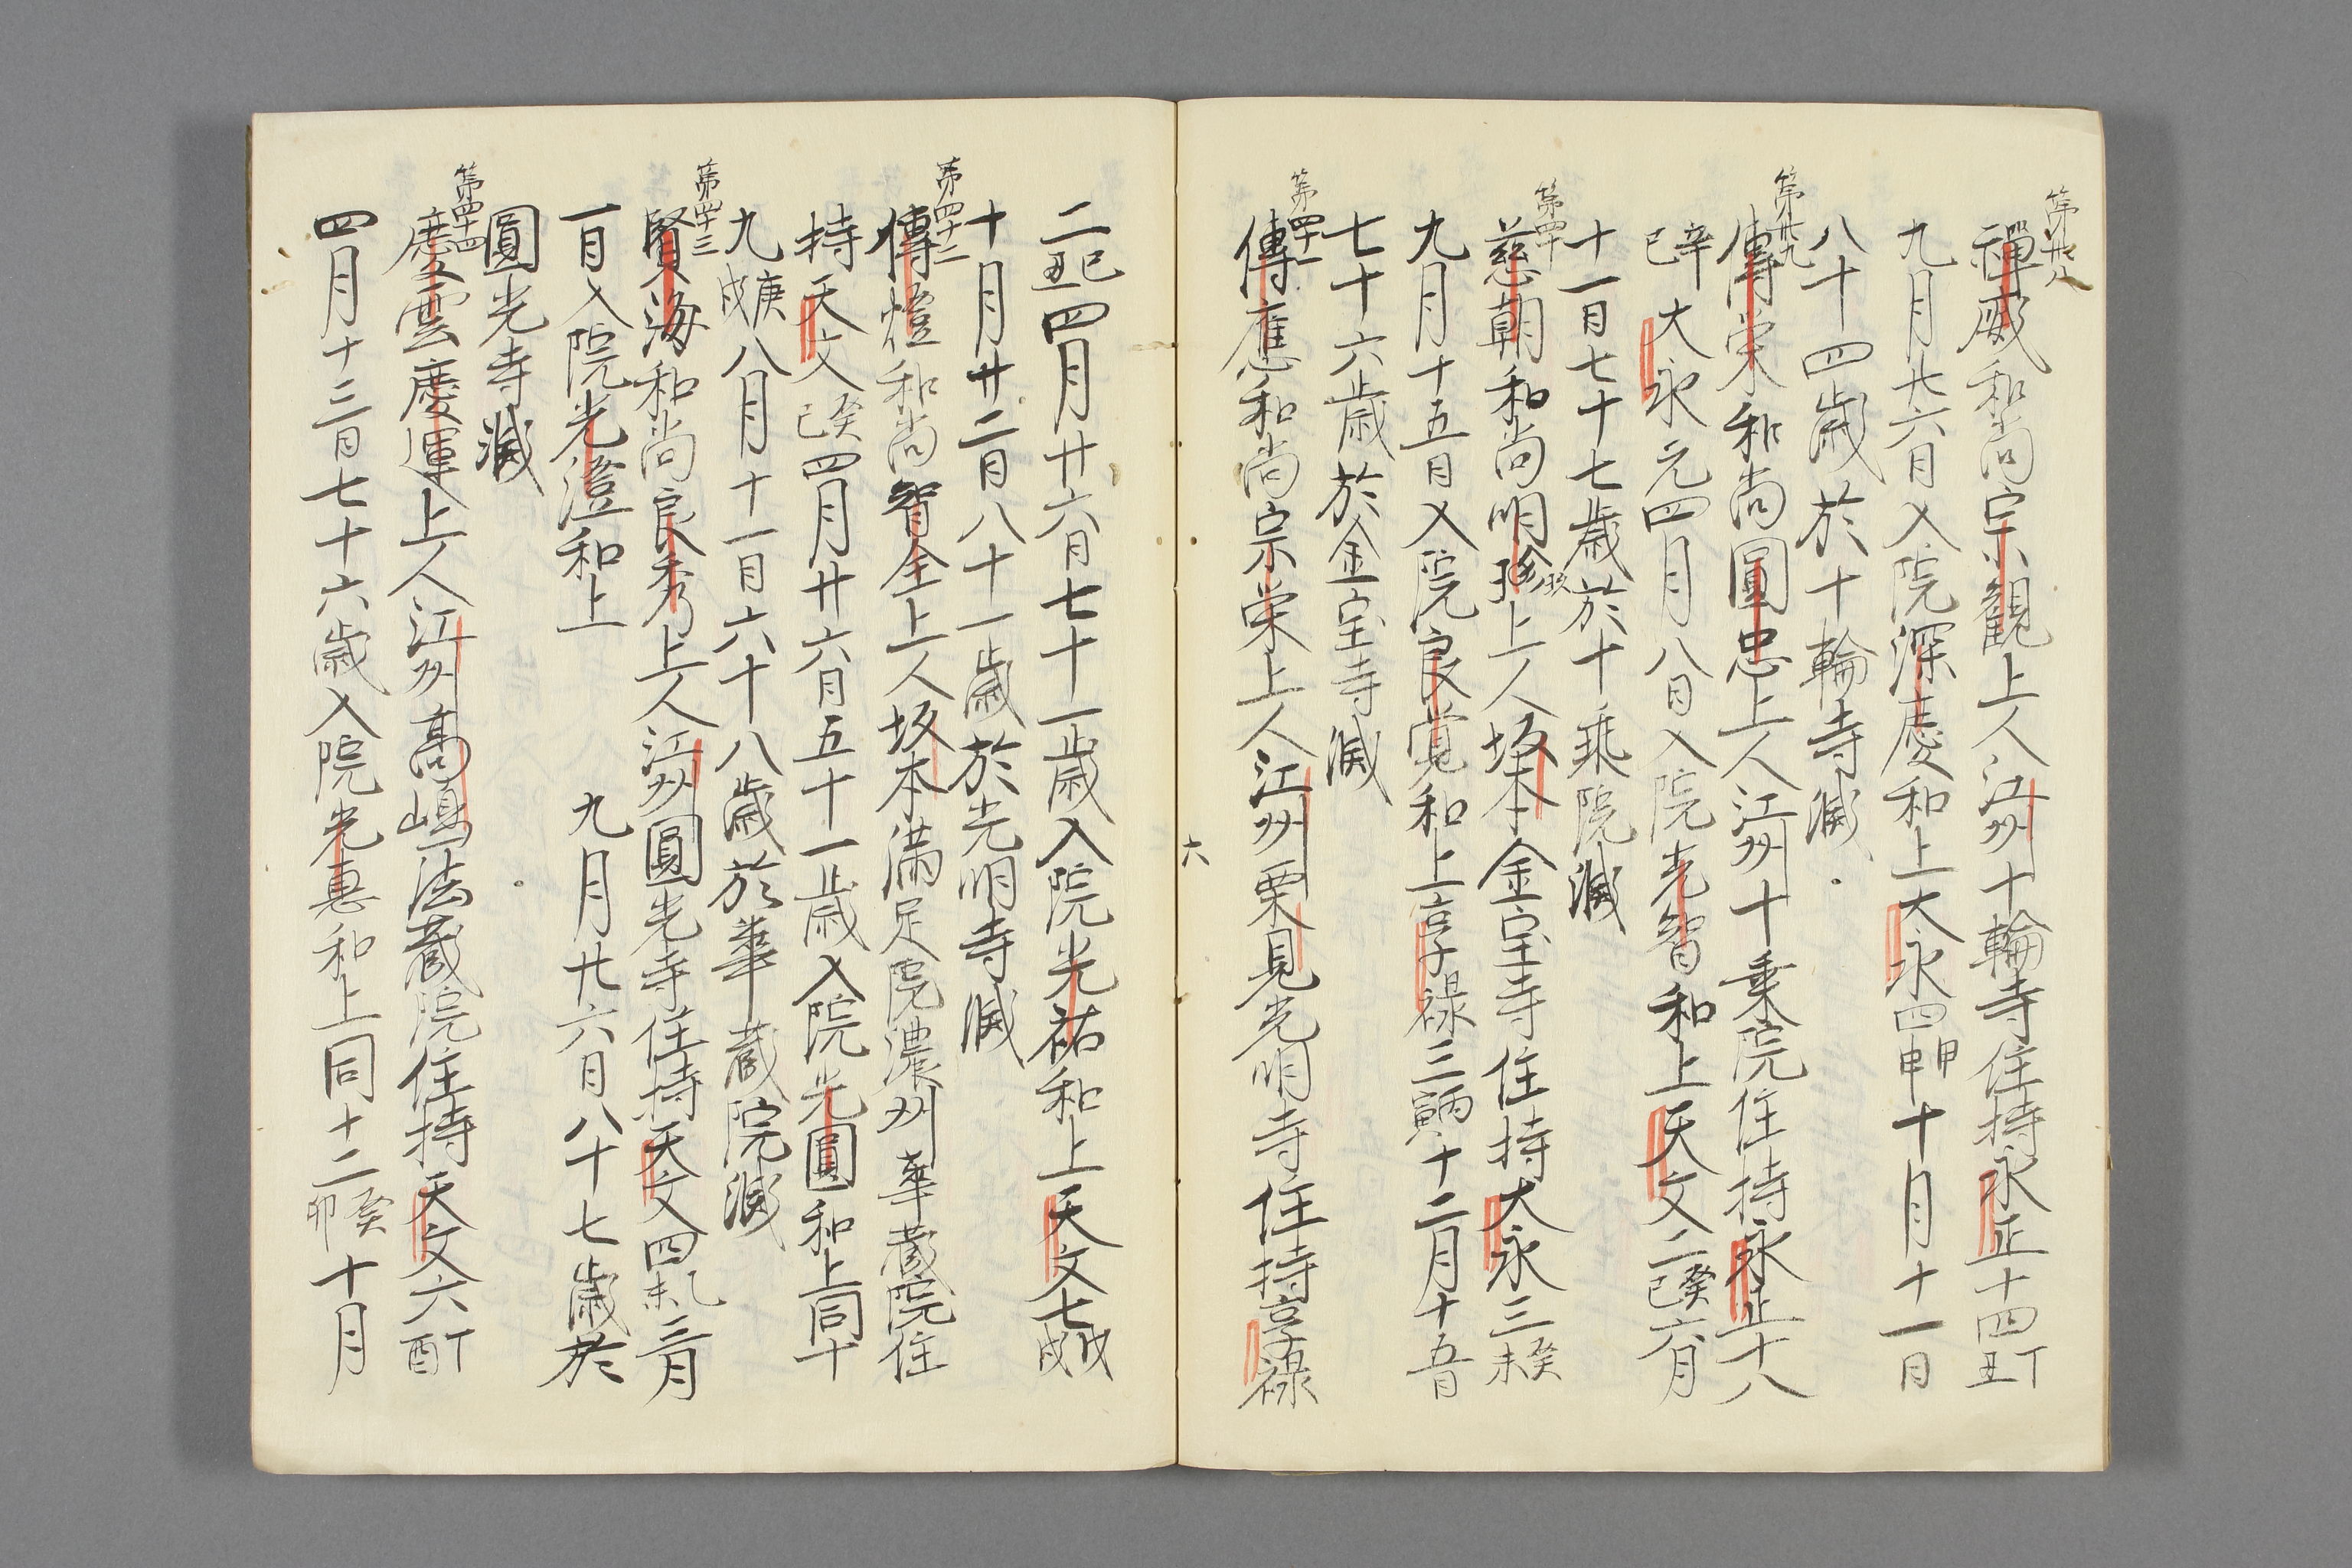 第卅八
禪威和尚宗観上人江州十輪寺住持永正十四丁丑
九月廿六日入院深慶和上大永四甲申十月十一日
八十四歳於十輪寺滅
第卅九
傳栄和尚圓忠上人江州十乗院住持永正十八
辛巳大永元四月八日入院光智和上天文二癸巳六月
十一日七十七歳於十乗院滅
第四十
慈朝和尚明珎上人坂本金宝寺住持大永三癸未
九月十五日入院良覚和上享禄三庚寅十二月十五日
七十六歳於金宝寺滅
第四十一
傳應和尚宗栄上人江州栗見光明寺住持享禄
六
二己丑四月廿六日七十一歳入院光祐和上天文七戊戌
十月廿二日八十一歳於光明寺滅
第四十二
傳燈和尚智全上人坂本満足院濃州華蔵院住
持天文二癸巳四月廿六日五十一歳入院光圓和上同十
九庚戌八月十一日六十八歳於華蔵院滅
第四十三
賢海和尚良秀上人江州圓光寺住持天文四乙未三月
一日入院光澄和上 九月廿六日八十七歳於
圓光寺滅
第四十四
慶雲慶運上人江州高嶋法蔵院住持天文六丁酉
四月十三日七十六歳入院光恵和上同十二癸卯十月